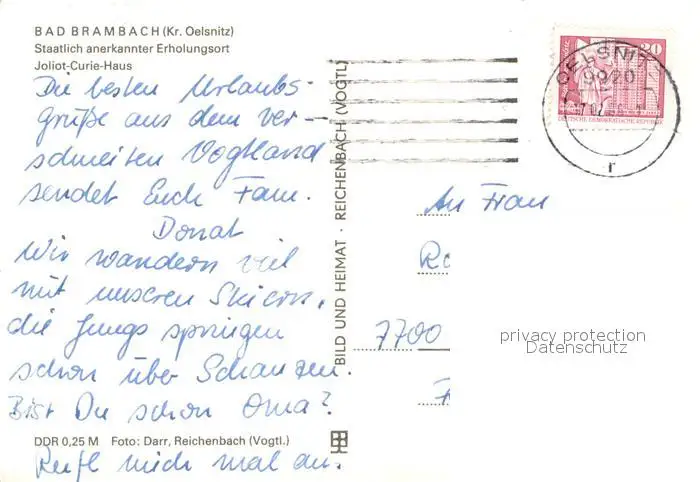 BAD BRAMBACH (Kr. Oelsnitz)
Staatlich anerkannter Erholungsort
Joliot-Curie-Haus
Die besten Urlaubs-
grüße aus dem ver-
schneiten Vogtland
sendet Euch Fam.
Donat
Wir wandern viel
mit unseren Skiern,
die Jungs springen
schon über Schanzen.
Bist Du schon Oma?
DDR 0,25 M Foto: Darr, Reichenbach (Vogtl.)
Rufl mich mal an.
BILD UND HEIMAT · REICHENBACH (VOGTL)
20
DEUTSCHE DEMOKRATISCHE REPUBLIK
OELSNITZ
9920
r
An Frau
7700
privacy protection
Datenschutz